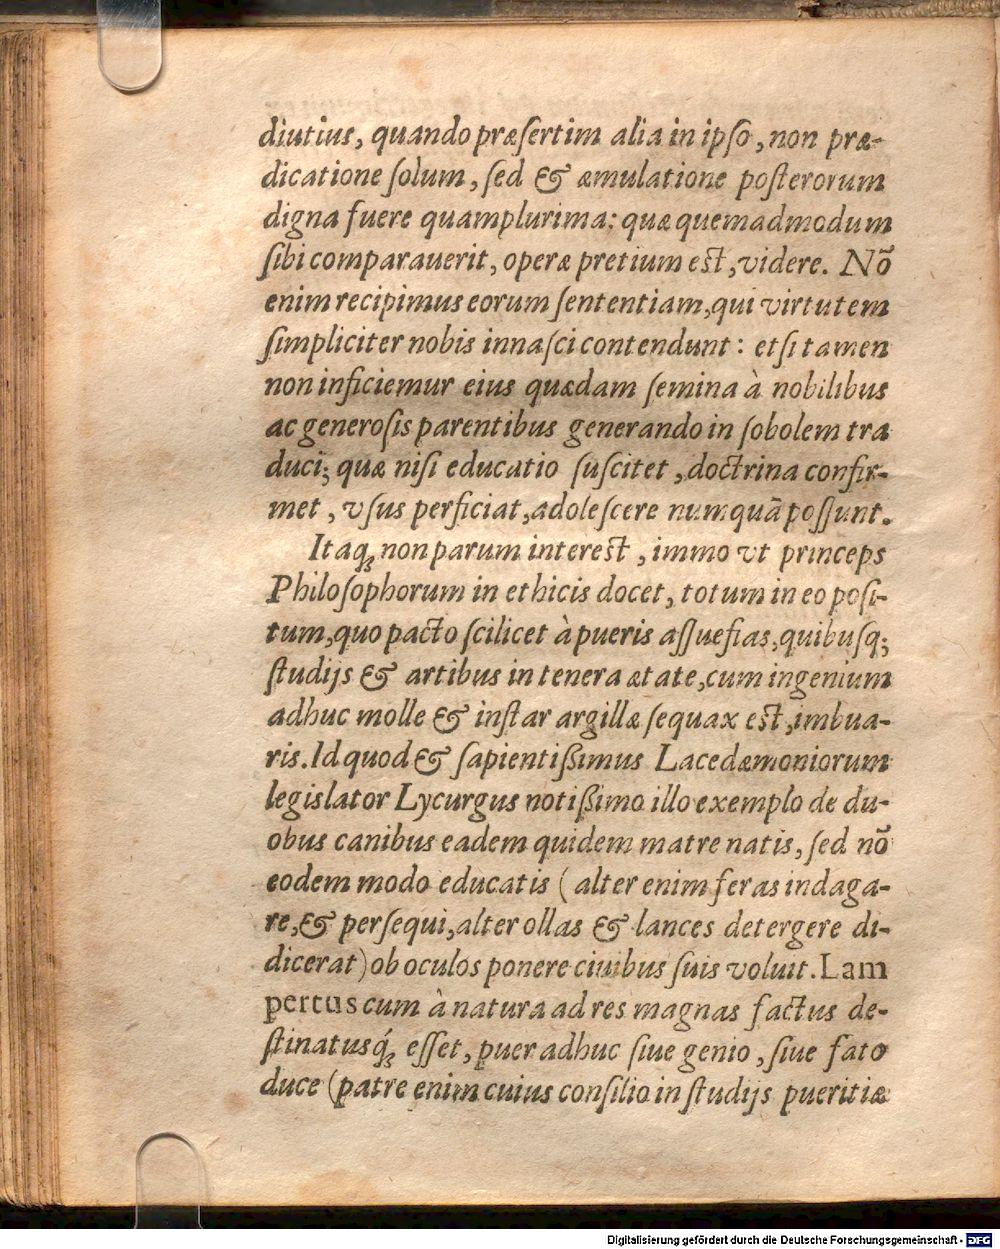 diutius, quando præſertim alia in ipſo, non præ-
dicatione ſolum, ſed & æmulatione poſterorum
digna fuere quamplurima: quæ quemadmodum
ſibi comparauerit, operæ pretium eſt, videre. Nõ
enim recipimus eorum ſententiam, qui virtutem
ſimpliciter nobis innaſci contendunt: etſi tamen
non inficiemur eius quædam ſemina à nobilibus
ac generoſis parentibus generando in ſobolem tra
duci; quæ niſi educatio ſuſcitet, doctrina confir-
met, vſus perficiat, adoleſcere numquã poſſunt.
Itaq; non parum intereſt, immo vt princeps
Philoſophorum in ethicis docet, totum in eo poſi-
tum, quo pacto ſcilicet à pueris aſſuefias, quibuſq;
ſtudijs & artibus in tenera ætate, cum ingenium
adhuc molle & inſtar argillæ ſequax eſt, imbua-
ris. Id quod & ſapientißimus Lacedæmoniorum
legislator Lycurgus notißimo illo exemplo de du-
obus canibus eadem quidem matre natis, ſed nõ
eodem modo educatis (alter enim feras indaga-
re, & perſequi, alter ollas & lances detergere di-
dicerat) ob oculos ponere ciuibus ſuis voluit. Lam
pertus cum à natura ad res magnas factus de-
ſtinatusq́; eſſet, puer adhuc ſiue genio, ſiue fato
duce (patre enim cuius conſilio in ſtudijs pueritiæ
Digitalisierung gefördert durch die Deutsche Forschungsgemeinschaft - DFG